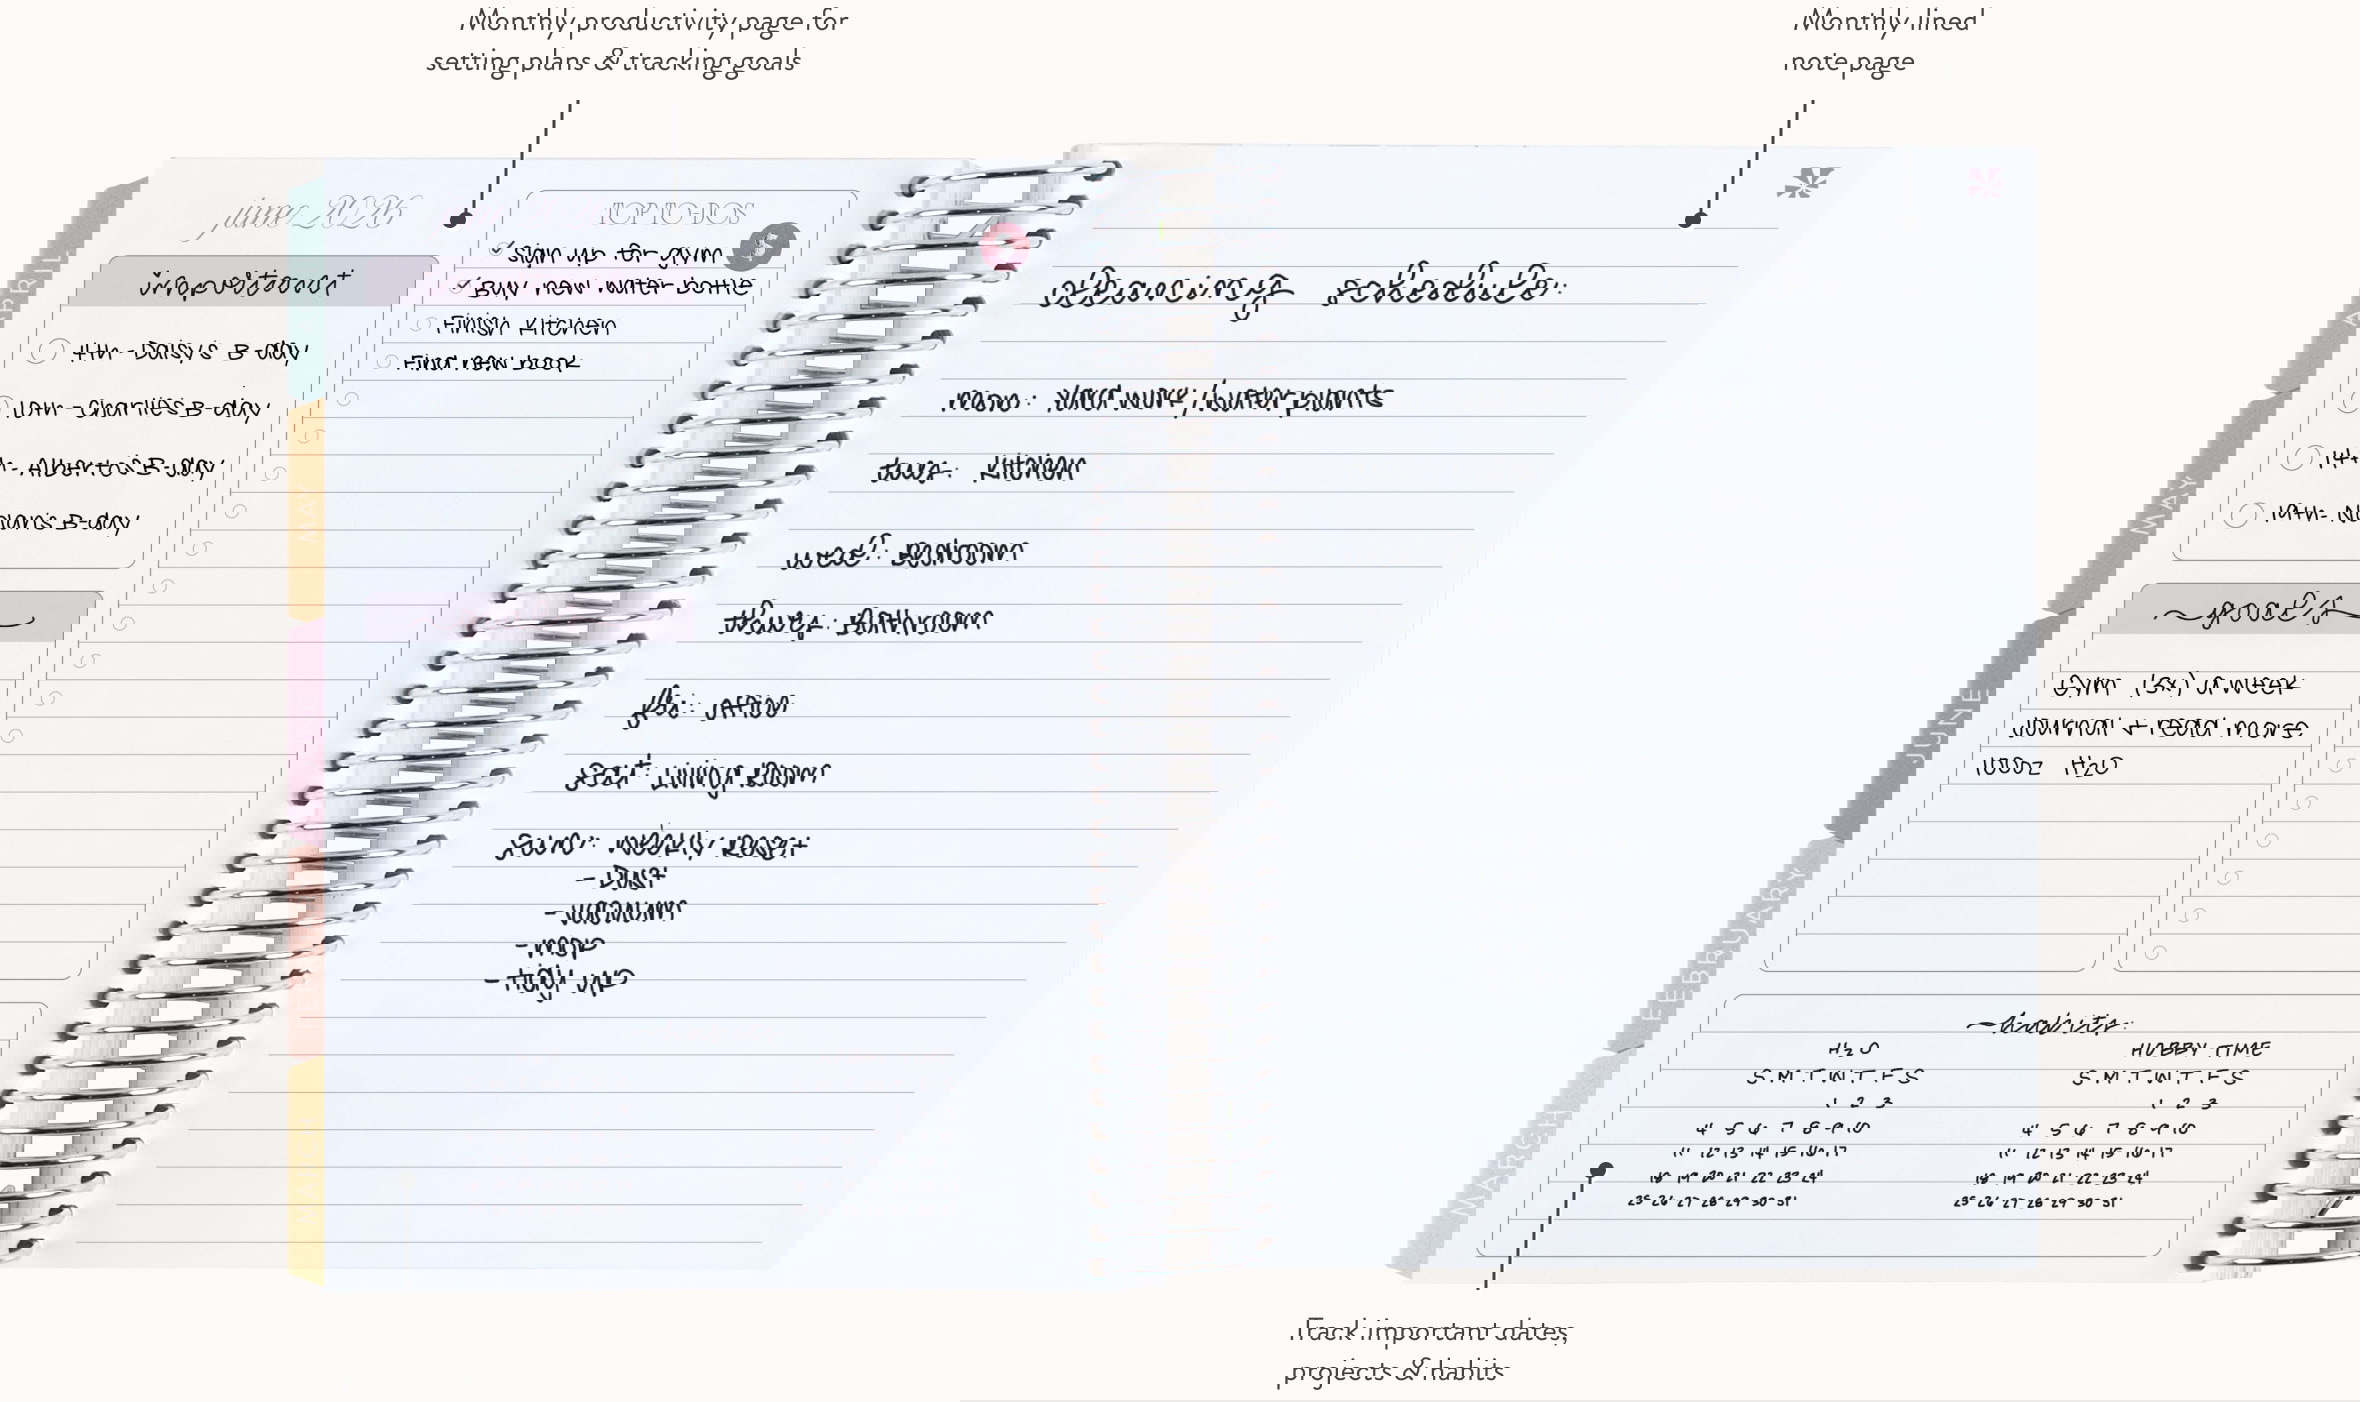 Monthly productivity page for
setting plans & tracking goals
Monthly lined
note page
june 2026
TOP TO-DOS
sign up for gym
Buy new water bottle
Finish Kitchen
Find new book
important
4th - Daisy's B-day
10th - Charlie's B-day
14th - Alberto's B-day
19th - B-day
goals
Gym (3x) a week
Journal + read more
100oz H2O
habits
H2O
S M T W T F S
1 2 3
4 5 6 7 8 9 10
11 12 13 14 15 16 17
18 19 20 21 22 23 24
25 26 27 28 29 30 31
HOBBY TIME
S M T W T F S
1 2 3
4 5 6 7 8 9 10
11 12 13 14 15 16 17
18 19 20 21 22 23 24
25 26 27 28 29 30 31
cleaning schedule:
mon: Yard work / water plants
tues: Kitchen
wed: Bedroom
thurs: Bathroom
fri: office
sat: Living Room
sun: Weekly Reset
- Dust
- Vacuum
- Mop
- Tidy up
APRIL
MAY
MARCH
MAY
JUNE
FEBRUARY
MARCH
Track important dates,
projects & habits